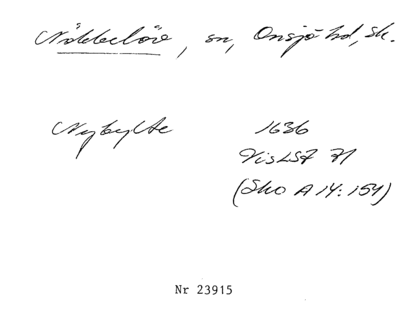 Nöbbelöv, sn, Onsjö hd, Sk.
Nybylte 1636
VisLSF 71
(Sko A 14:154)
Nr 23915